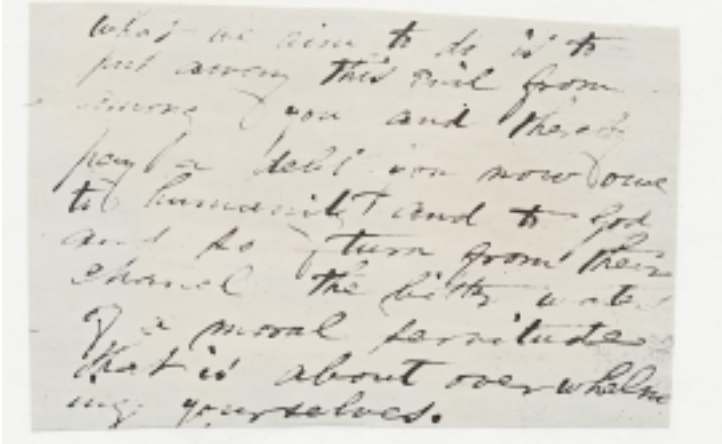 What we aim to do is to
put away this evil from
among you and thereby
pay a debt you now owe
to humanity and to God
and so turn from their
chanel the bitter water
of a moral servitude
that is about overwhelm
ing yourselves.